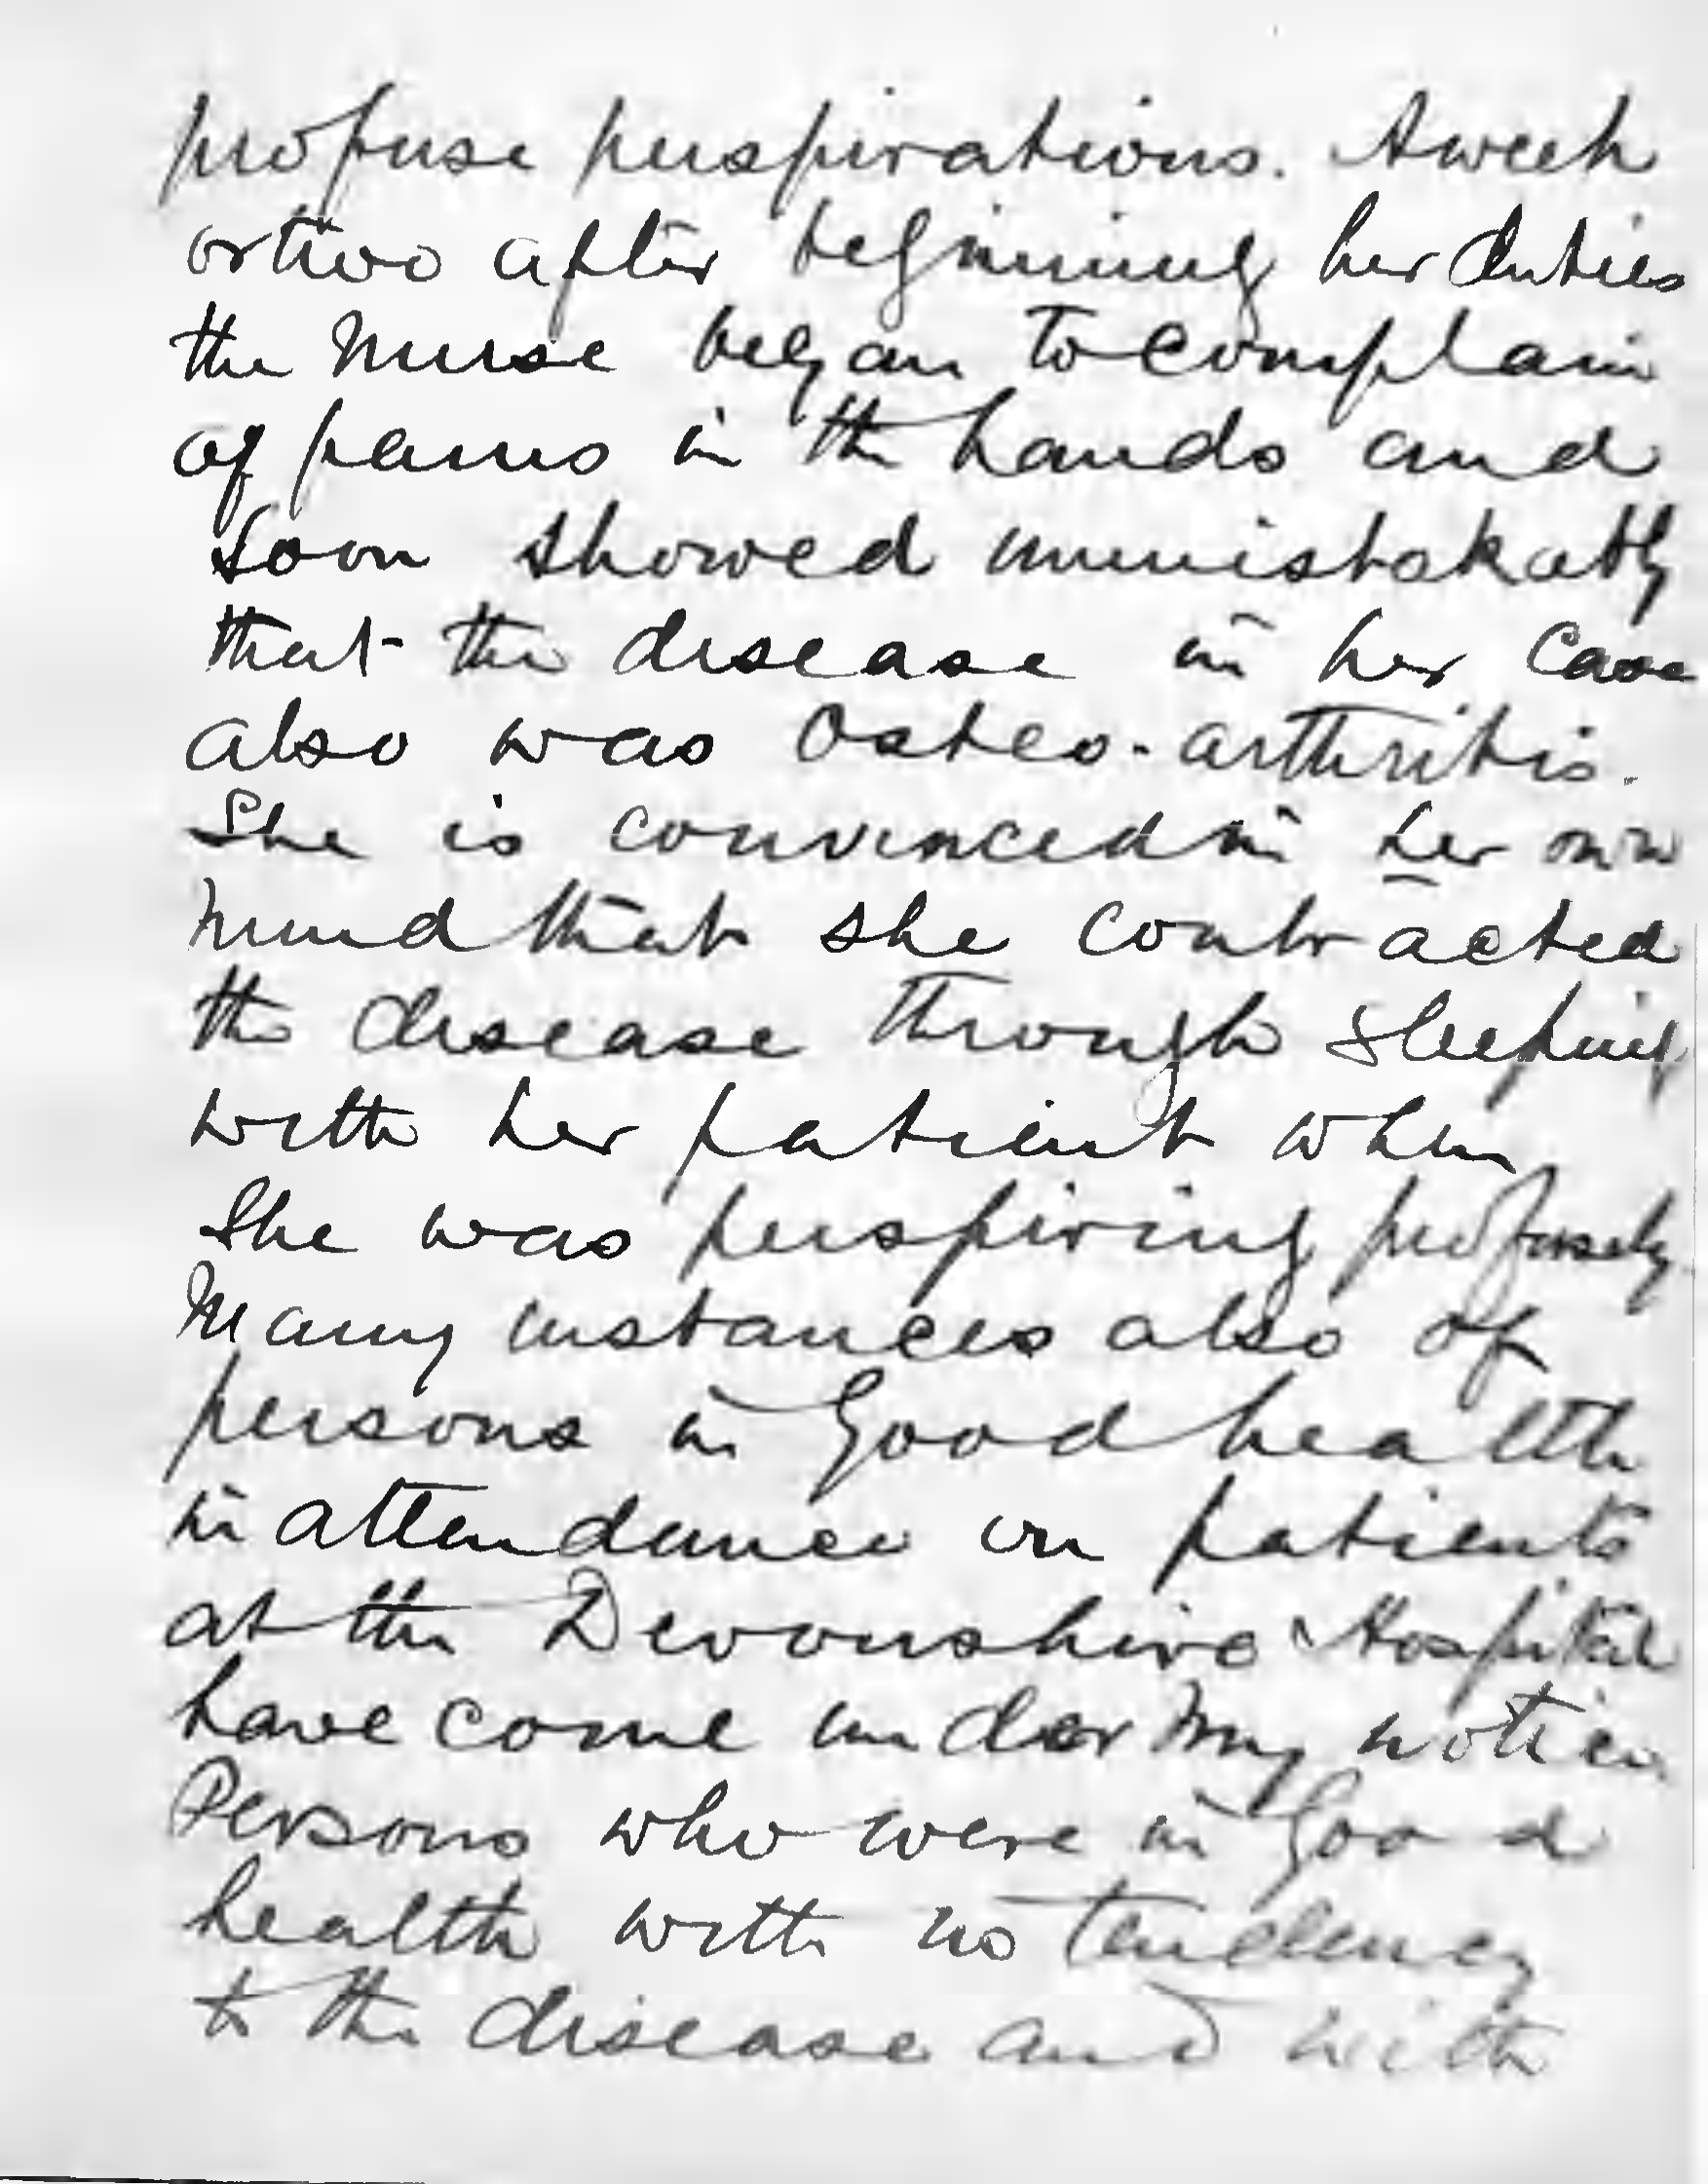 profuse perspirations. A week
or two after beginning her duties
the Nurse began to complain
of pains in the hands and
soon showed unmistakably
that the disease in her case
also was Osteo-arthritis.
She is convinced in her own
mind that she contracted
the disease through sleeping
with her patient when
she was perspiring profusely.
Many instances also of
persons in good health
in attendance on patients
at the Devonshire Hospital
have come under my notice.
Persons who were in good
health with no tendency
to the disease and with